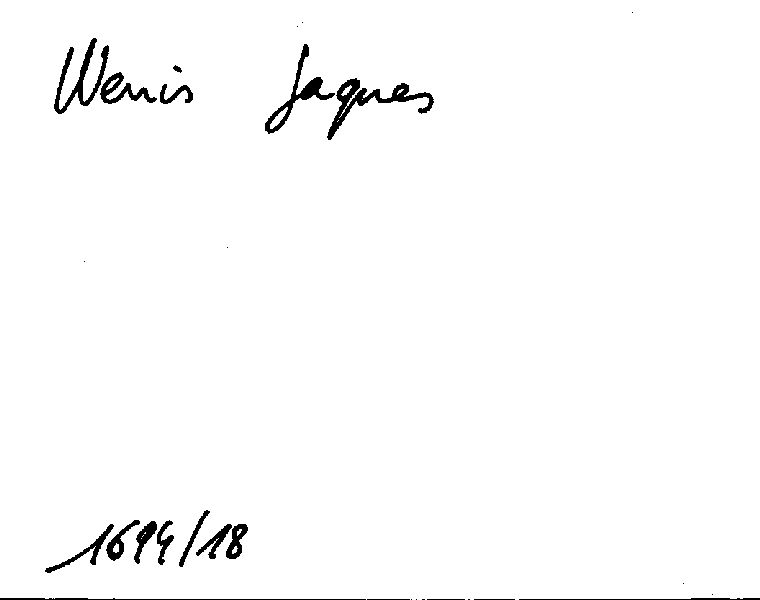 Wenis Jaques
1694/18